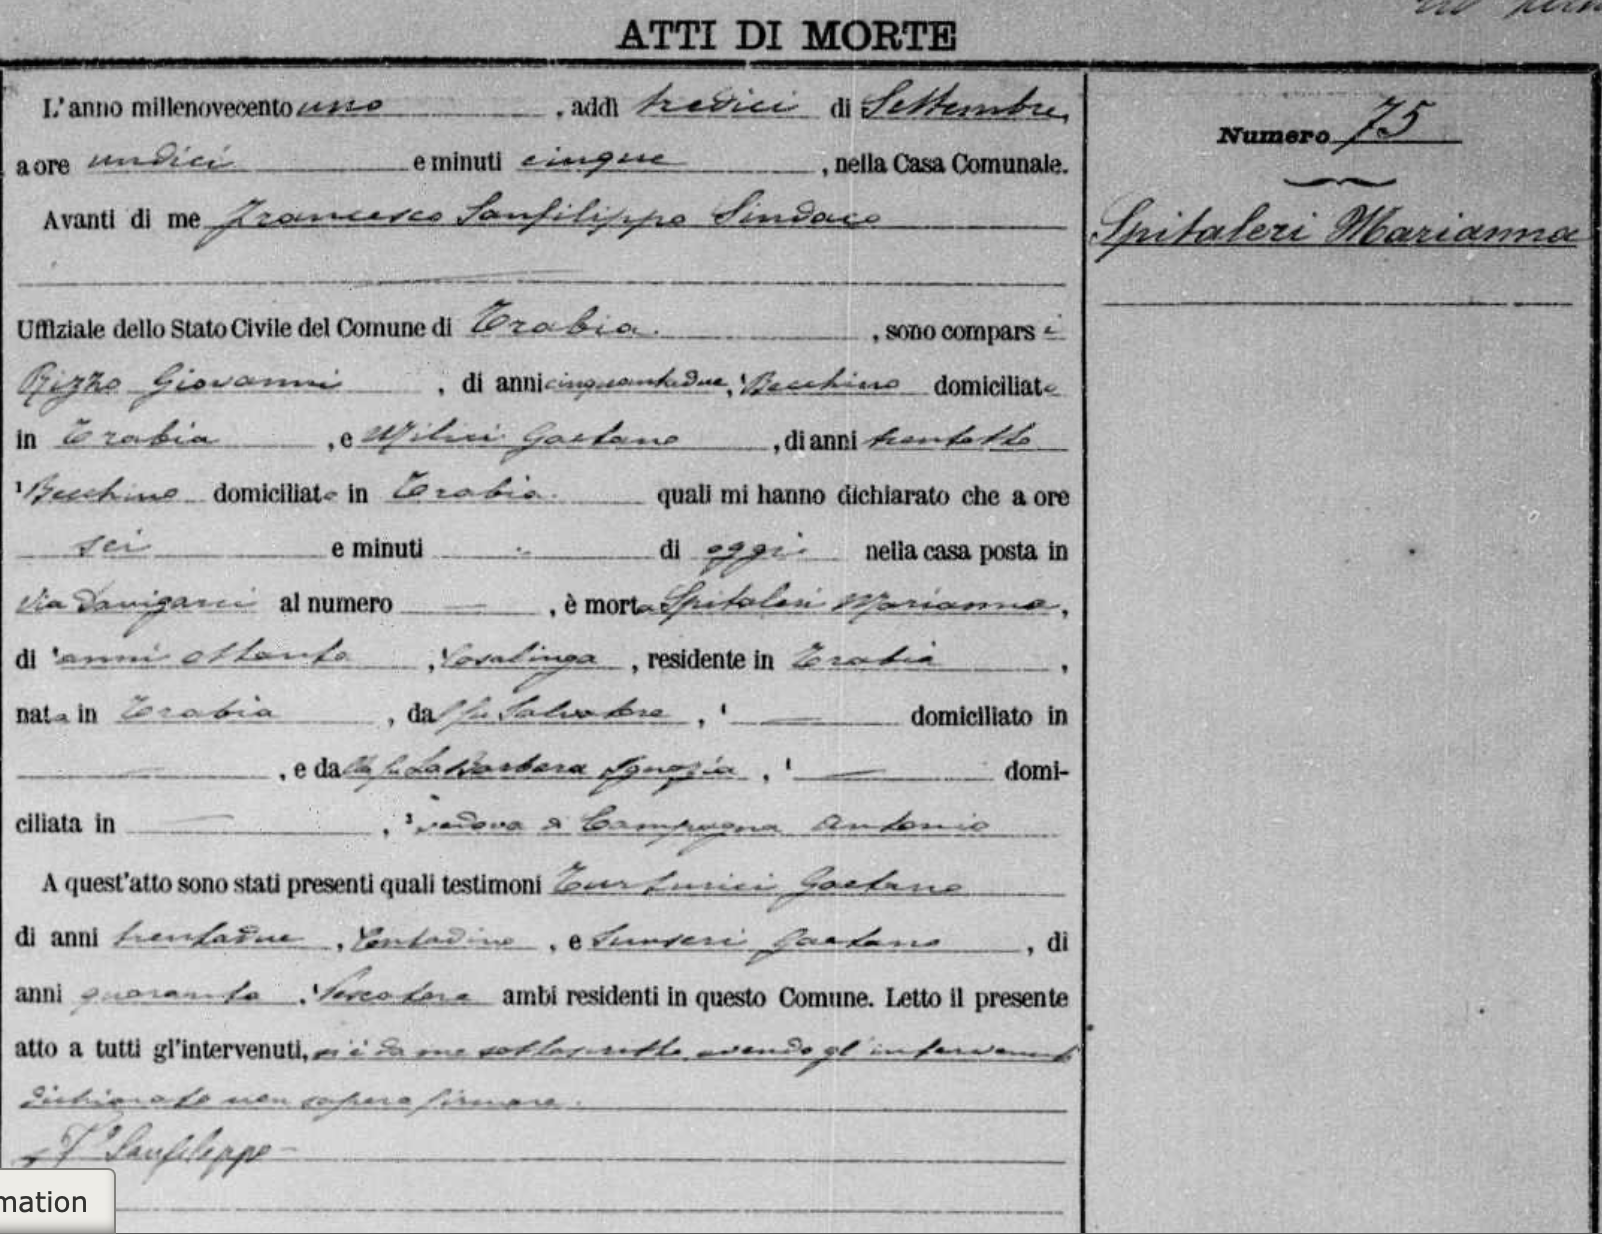 ATTI DI MORTE
L'anno millenovecento uno, addì tredici di Settembre,
a ore undici e minuti cinque, nella Casa Comunale.
Avanti di me Francesco Sanfilippo Sindaco
Uffiziale dello Stato Civile del Comune di Trabia, sono comparsi
Rizzo Giovanni, di anni cinquantadue, ¹Becchino domiciliato
in Trabia, e Milici Gaetano, di anni trentotto
¹Becchino domiciliato in Trabia quali mi hanno dichiarato che a ore
sei e minuti di oggi nella casa posta in
via al numero —, è morta Spitaleri Marianna,
di ¹anni ottanta, Casalinga, residente in Trabia,
nata in Trabia, dal fu Salvatore, ¹ — domiciliato in
—, e dalla fu La Barbara Ignazia, ¹ — domi-
ciliata in —, ³vedova di Campagna Antonio
A quest'atto sono stati presenti quali testimoni Turturici Gaetano
di anni trentadue, Contadino, e Sunseri Gaetano, di
anni quaranta, ¹Pescatore ambi residenti in questo Comune. Letto il presente
atto a tutti gl'intervenuti, si è da me sottoscritto, avendo gl'intervenuti
dichiarato non sapere firmare.
F° Sanfilippo
mation
Numero 75
Spitaleri Marianna